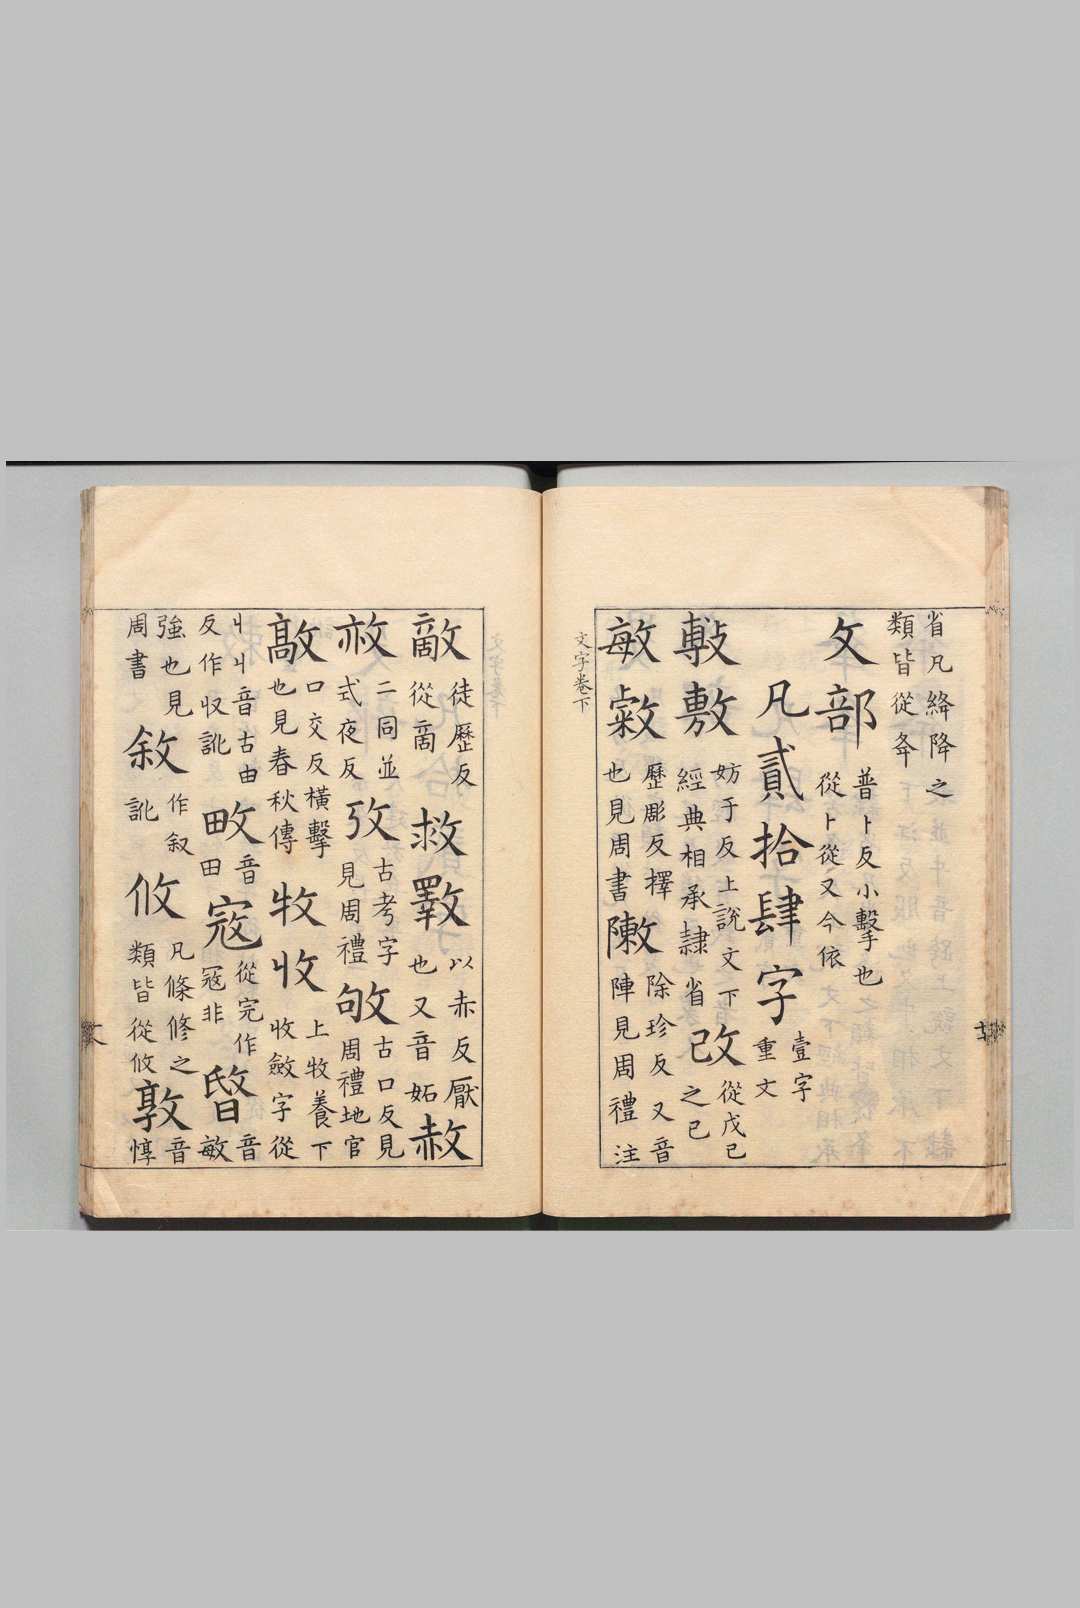 省凡絳降之
類皆從夅
攵部
普卜反小擊也
從卜從又今依
凡貳拾肆字
壹字
重文
敷
妨于反上說文下
經典相承隸省
改
從戊己
之己
敏敹
歷彫反擇
也見周書
敶
除珍反又音
陣見周禮注
文字卷下
敵
徒歷反
從啇
救斁
以赤反厭
也又音妬
赦
𢼜
二同並
式夜反
攷
古考字
見周禮
敂
古口反見
周禮地官
敲
口交反橫擊
也見春秋傳
牧收
上牧養下
收斂字從
丩丩音古由
反作収訛
畋
音
田
寇
從完作
冦非
敯
音
敏
強也見
周書
敘
作叙
訛
攸
凡條修之
類皆從攸
敦
音
惇